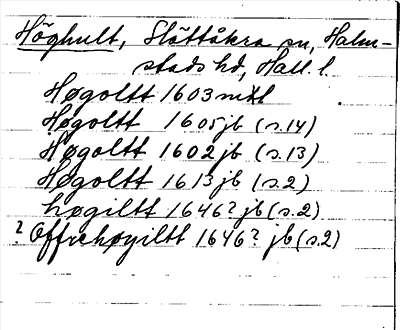 Höghult, Slättåkra sn, Halm-
stads hd, Hall. l.
Høgoltt 1603 mtl
Høgoltt 1605 jb (s.14)
Høgoltt 1602 jb (s.13)
Høgoltt 1613 jb (s.2)
høgiltt 1646? jb (s.2)
? Offrehøgiltt 1646? jb (s.2)